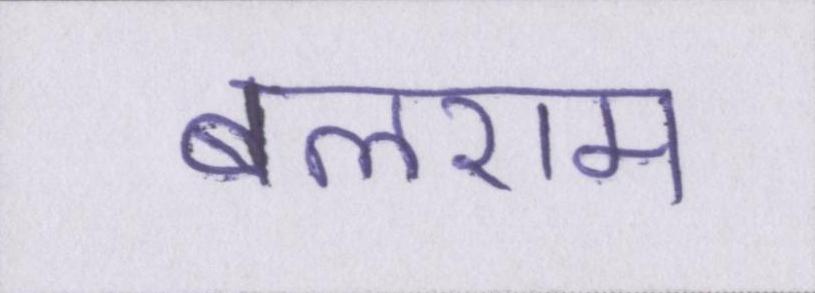 बलराम